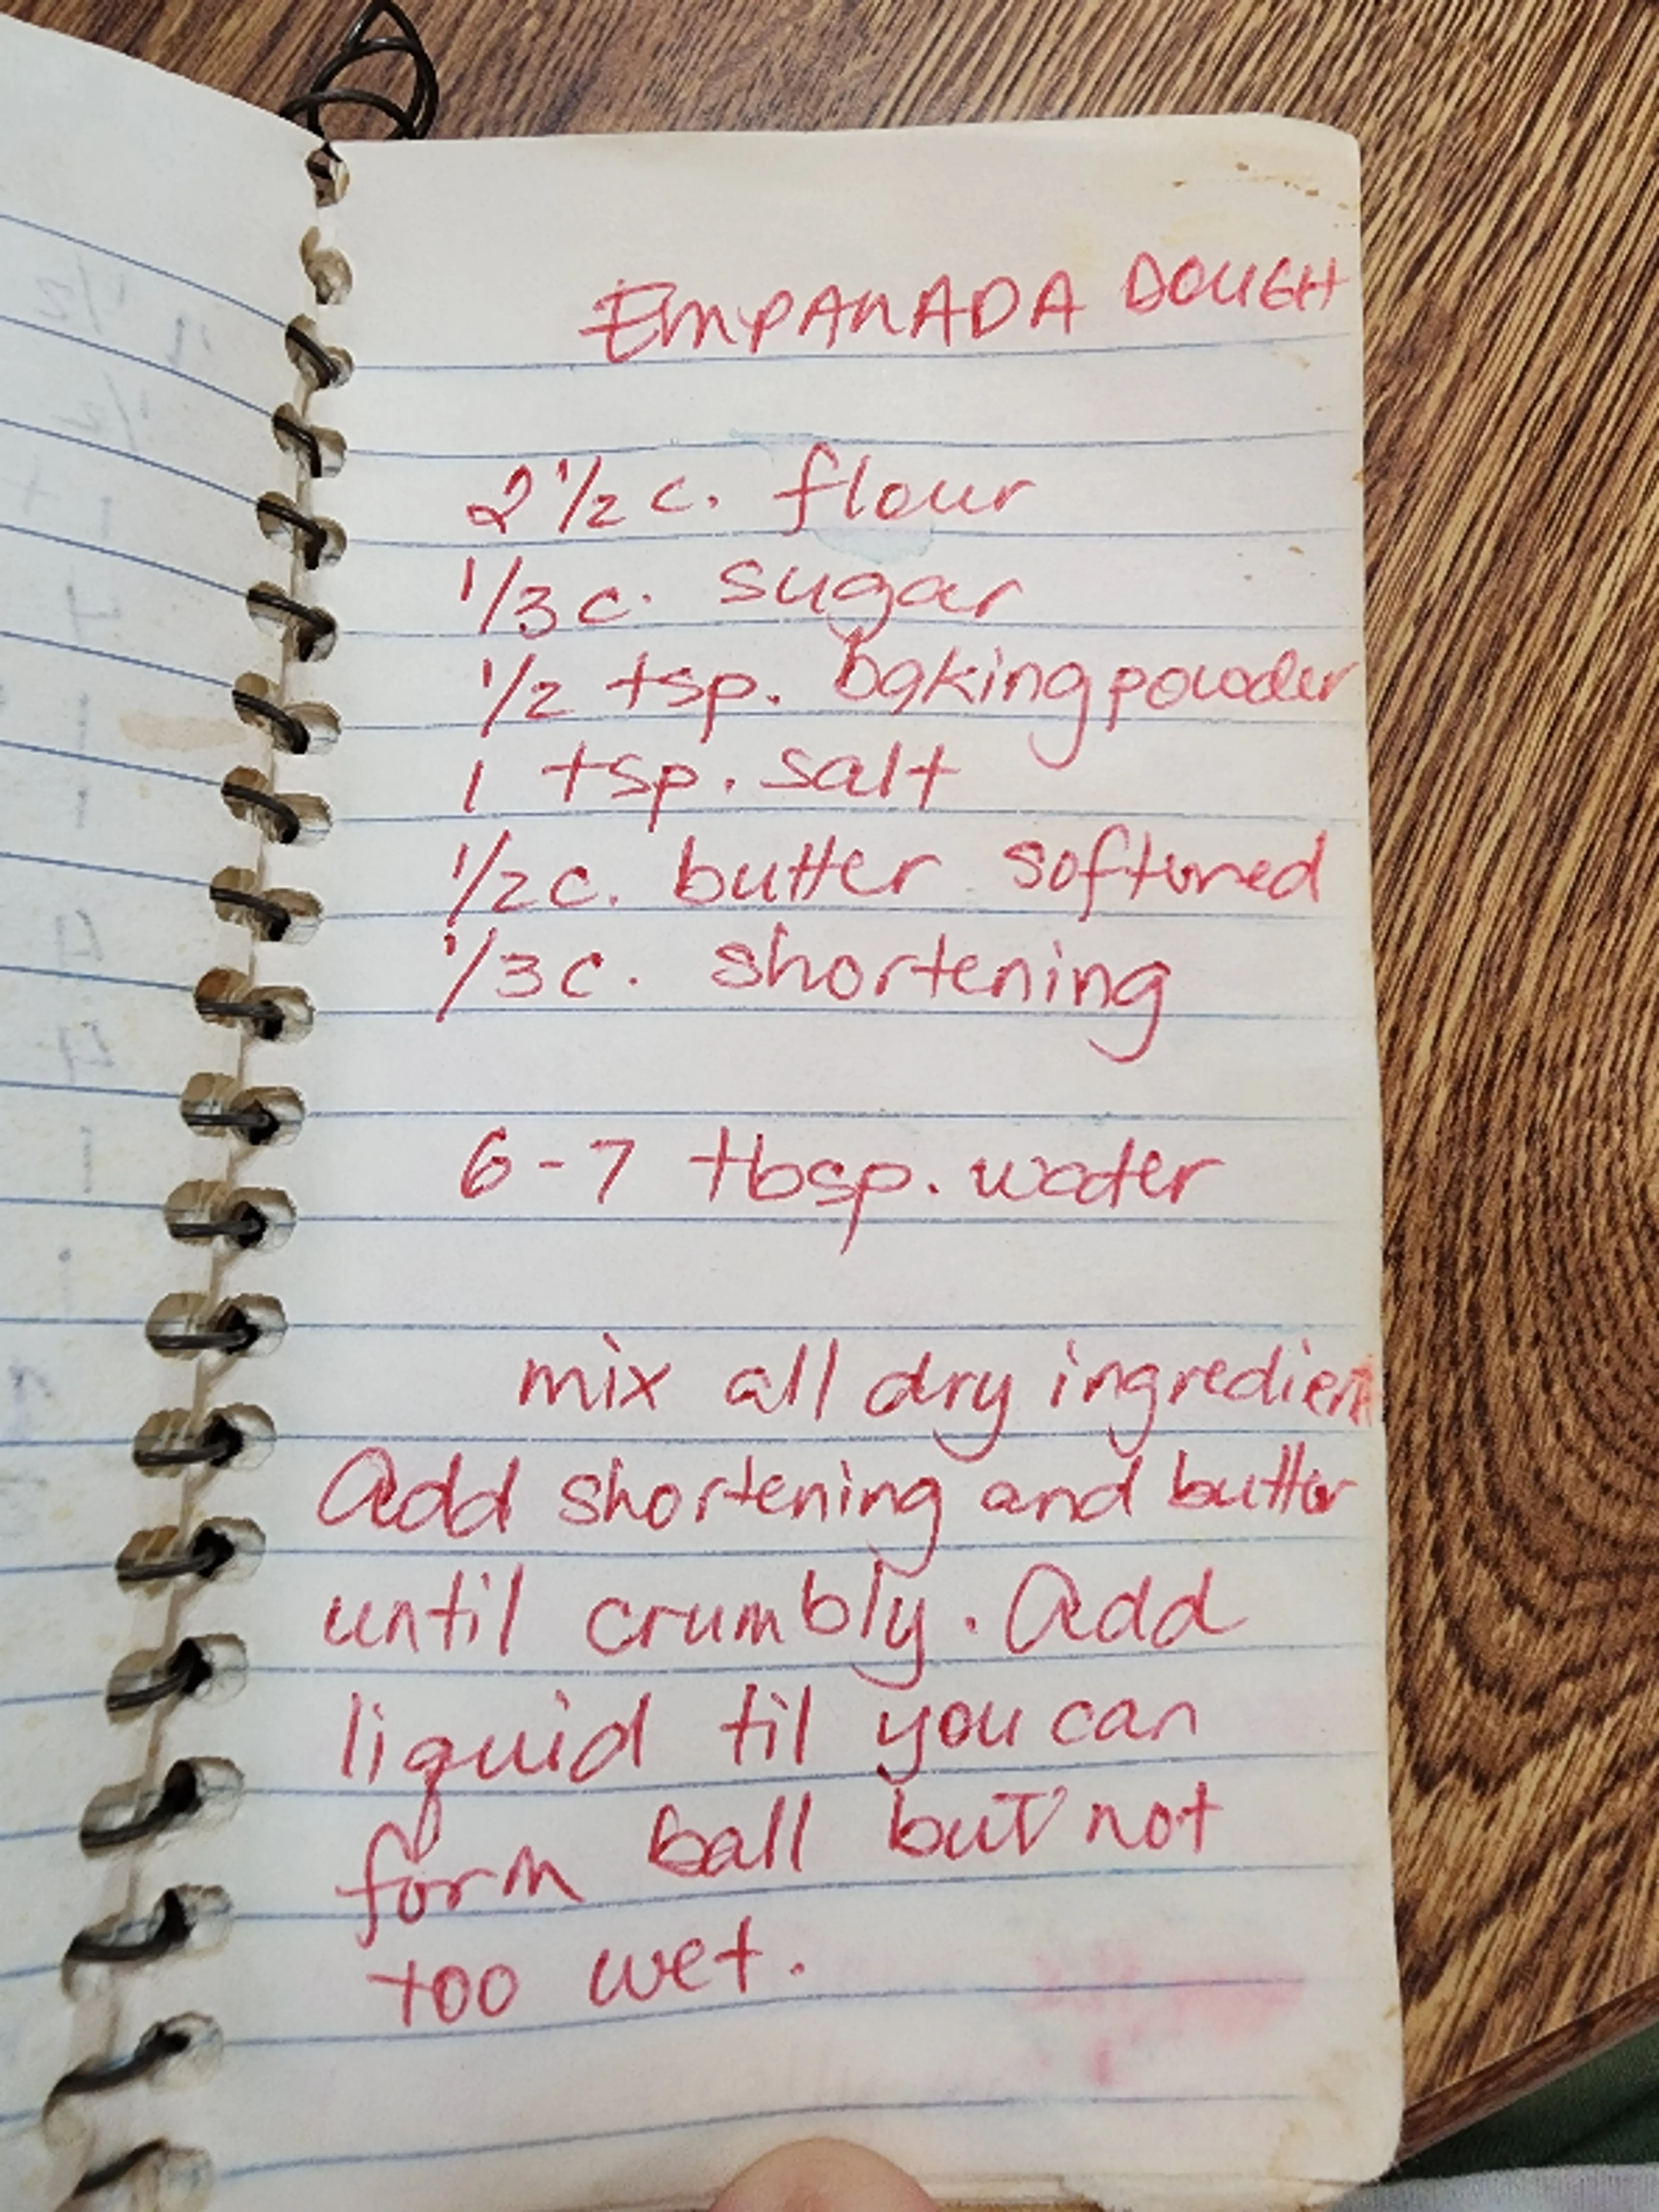 EMPANADA DOUGH
2 1/2 c. flour
1/3 c. sugar
1/2 tsp. baking powder
1 tsp. salt
1/2 c. butter softened
1/3 c. shortening
6-7 tbsp. water
mix all dry ingredient
Add shortening and butter
until crumbly. Add
liquid til you can
form ball but not
too wet.